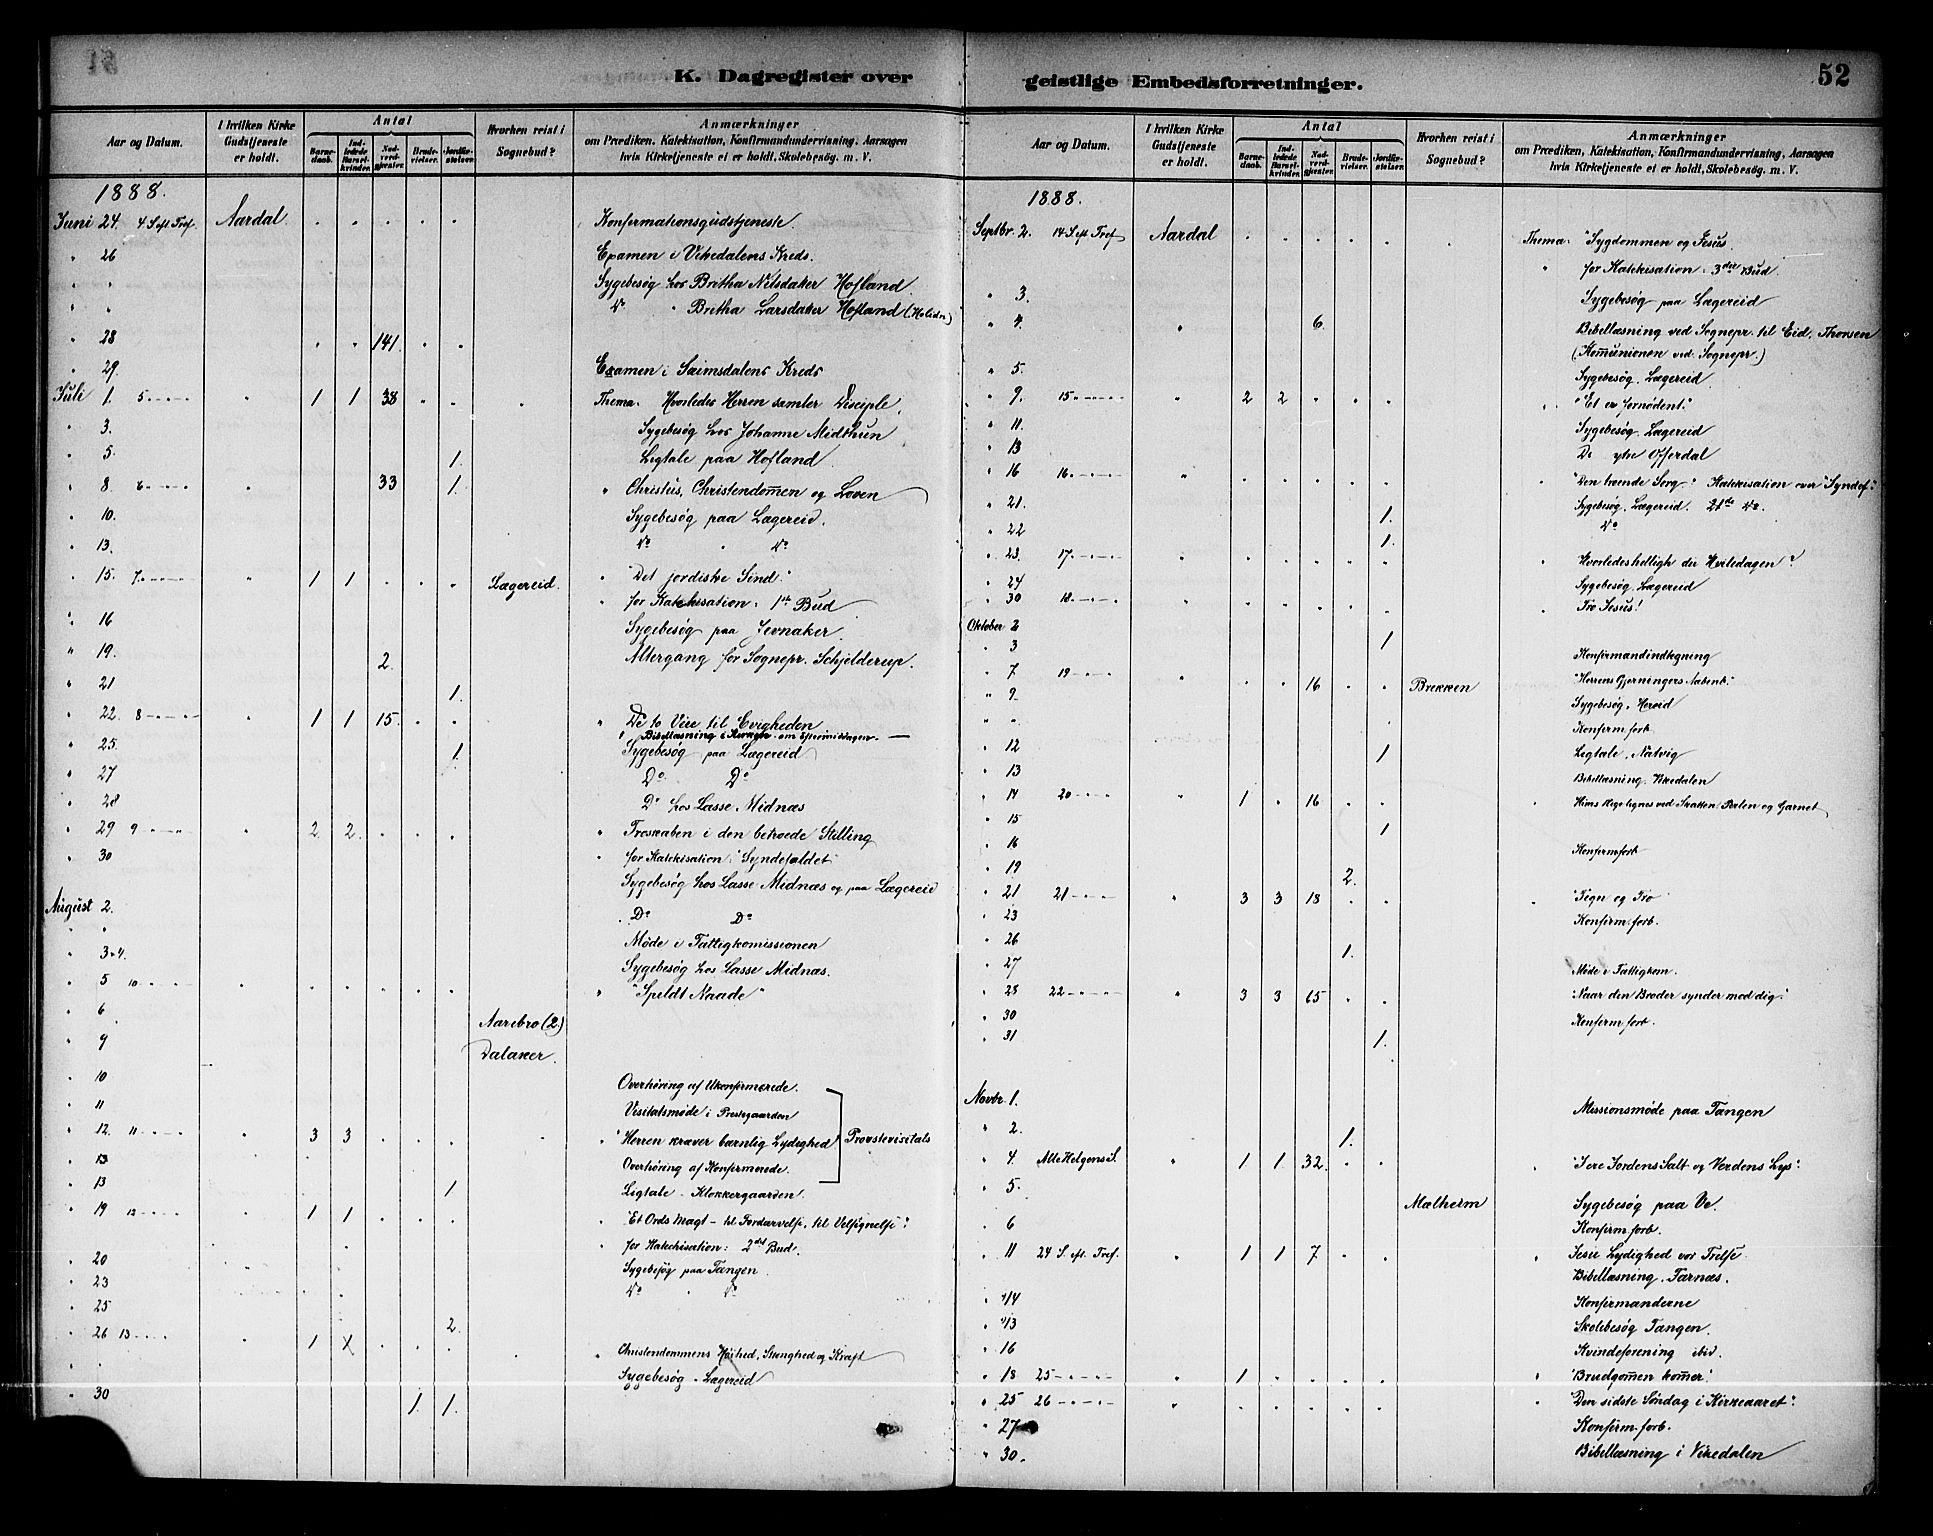 K. Dagregister over
geistlige Embedsforretninger.
52
Aar og Datum.
I hvilken Kirke Gudstjeneste er holdt.
Antal
Barnedaab.
Indledede Barselkvinder.
Nadverdgjester.
Brudevielser.
Jordfæstelser.
Hvorhen reist i Sognebud?
Anmærkninger
om Prædiken, Katekisation, Konfirmandundervisning, Aarsagen
hvis Kirketjeneste ei er holdt, Skolebesøg. m. V.
1888.
Juni 24. 4 S. eft. Tref. Aardal " " " " " Konfirmationsgudstjeneste.
" 26 Examen i Vikedalens Kreds.
" " Sygebesøg hos Britha Nilsdaker Hofland.
" " Do " Britha Larsdaker Hofland
" 28 " " 141. " "
" 29. Examen i Seimsdalens Kreds
Juli 1. 5 " " " " 1 1 38 " " " Thema. Hvorledes Herren samler Disciple.
" 3. Sygebesøg hos Johanne Midthun
" 5. 1. Ligtale paa Hofland.
" 8. 6 " " " " 33 1. " Christus, Christendommen og Loven
" 10. Sygebesøg paa Lægereid.
" 13. Do " Do
" 15. 7 " " " " 1 1 " " " Lægereid. " "Det jordiske Sind."
" for Katekisation: 1ste Bud
" 16 Sygebesøg paa Jevnaker.
" 19. 2. Altergang for Sognepr. Schjelderup.
" 21 1.
" 22. 8 " " " " 1 1 15. " " " De to Veie til Evigheden
Bibellæsning i om Eftermiddagen.
" 25. 1. Sygebesøg paa Lægereid
" 27 Do Do
" 28 Do hos Lasse Midnæs
" 29 9 " " " " 2 2. " " " " Troskaben i den betroede Stilling
" 30 " for Katekisation: "Syndefaldet"
Sygebesøg hos Lasse Midnæs og paa Lægereid
August 2. Do Do
" " Møde i Fattigkomissionen
" 3 & 4. Sygebesøg hos Lasse Midnæs.
" 5 10 " " " " " " " " " " "Speldt Naade"
" 6 Aarebro (2.)
" 9 Dalaker.
" 10 Overhøring af Ukonfirmerede.
" 11 Visitatsmøde i Prestegaarden
" 12. 11 " " " " 3 3 " " " " " "Herren kræver barnlig Lydighed" Provstevisitats
" 13 Overhøring af Konfirmerede.
" 13 1 Ligtale - Klokkergaarden.
" 19 12 " " " " 1 1 " " " " "Et Ords Magt - til Fordærvelse, til Velsignelse".
" for Katechisation: 2det Bud.
" 20 Sygebesøg paa Tangen.
" 23 Do " Do
" 25 2.
" 26 13 " " " " 1 X " " " " " Christendommens Høihed, Strenghed og Kraft
" " Sygebesøg - Lægereid
" 30 1. 1.
Aar og Datum.
I hvilken Kirke Gudstjeneste er holdt.
Antal
Barnedaab.
Indledede Barselkvinder.
Nadverdgjester.
Brudevielser.
Jordfæstelser.
Hvorhen reist i Sognebud?
Anmærkninger
om Prædiken, Katekisation, Konfirmandundervisning, Aarsagen
hvis Kirketjeneste ei er holdt, Skolebesøg. m. V.
1888.
Septbr. 2. 14 S. eft. Tref Aardal " " " " " " Thema: "Sygdommen og Jesus.
" for Katekisation: 3die Bud.
" 3. Sygebesøg paa Lægereid
" 4. " 6. Bibellæsning ved Sognepr. til Eid, Thorsen
(Kommunionen ved Sognepr.)
" 5. Sygebesøg. Lægereid.
" 9. 15 " " " " 2 2 " " " " "Et er fornødent."
" 11. Sygebesøg. Lægereid
" 13 Do ytre Offerdal
" 16 16 " " " " " " " " " " "Den troende Sorg." Katekisation over "Syndef."
" 21. 1. Sygebesøg. Lægereid. 21de Do.
" 22 1. Do
" 23. 17 " " " " " " " " " Hvorledes hellighr du Hviledagen?
" 24 Sygebesøg. Lægereid
" 30 18. " " " " " " " " " " Tro Jesus!
Oktober 2
" 3 1 Konfirmandindtegning
" 7 19 " " " " " " 16 " " Brekken "Herrens Gjerningers Aabenb."
" 9. Sygebesøg,
" " Konfirm. forb.
" 12 1 Ligtale, Natvig
" 13 Bibellæsning. Vikedalen
" 14 20 " " " " 1 " 16 " " " Him. Rige lignes ved Skatten, Perlen og Garnet
" 15 1
" 16 Konfirm.forb
" 19 2.
" 21 21 " " " " 3 3 18 " " " "Tegn og Tro
" 23 Konfirm. forb.
" 26 1.
" 27 Møde i Fattigkom.
" 28 22 " " " " 3 3 15 " " "Naar den Broder synder mod dig."
" 30 Konfirm. forb.
" 31 1.
Novbr 1. Missionsmøde paa Tangen
" 2. 1.
" 4. Alle Helgens S. " 1 1 32. " " " "I ere Jordens Salt og Verdens Lys".
" 5. Mælheim Sygebesøg paa Ve.
" 6 Konfirm. forb.
" 11 24 S. eft. Tref. " 1 1 7 " " " Jesu Lydighed vor Frelse.
Bibellæsning. Farnæs.
" 14 Konfirmanderne
" 13 Skolebesøg Tangen.
" 16 Kvindeforening ibid.
" 18 25 " " " " 1 " " " " " "Brudgommen kommer!"
" 25 26 " " " " " " " " " " "Den sidste Søndag i Kirkeaaret".
" 27 Konfirm. forb.
" 30. Bibellæsning i Vikedalen